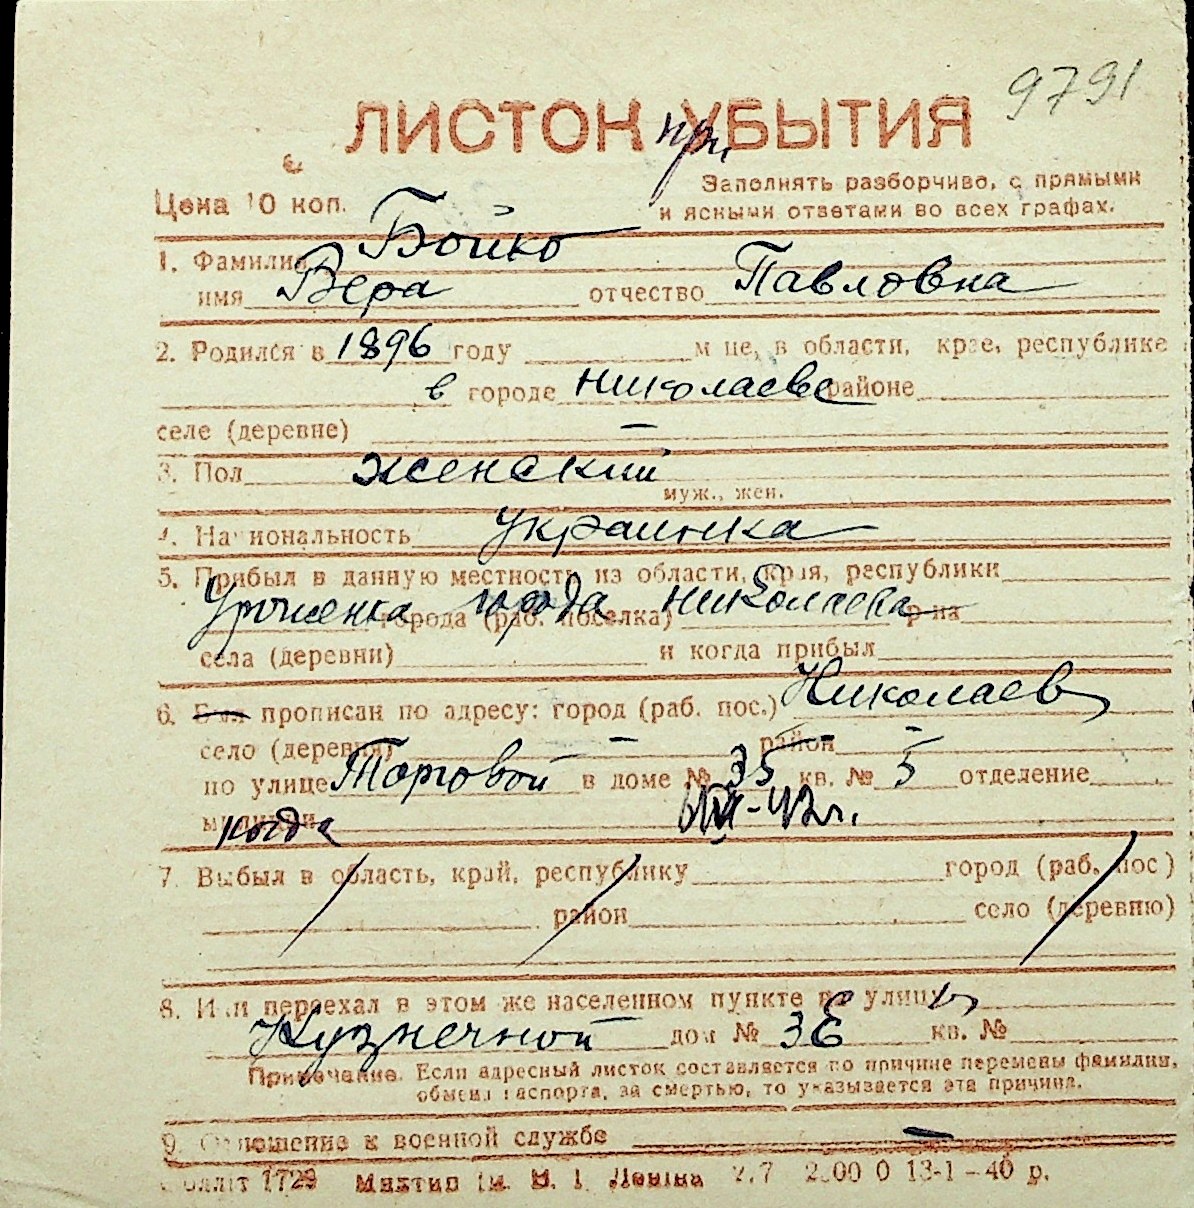 9791
ЛИСТОК при УБЫТИЯ
Цена 10 коп.
Заполнять разборчиво, с прямыми
и ясными ответами во всех графах.
1. Фамилия Бойко
имя Вера отчество Павловна
2. Родился в 1896 году м-це, в области, крае, республике
в городе Николаеве районе
селе (деревне) —
3. Пол женский
муж., жен.
4. Национальность украинка
5. Прибыл в данную местность из области, края, республики
Уроженка города Николаева
города (раб. поселка) р-на
села (деревни) и когда прибыл
6. Был прописан по адресу: город (раб. пос.) Николаев
село (деревня) — район —
по улице Торговой в доме № 35 кв. № 5 отделение
милиции когда
7. Выбыл в область, край, республику город (раб. пос)
район село (деревню)
8. Или переехал в этом же населенном пункте по улице
Кузнечной дом № 3Е кв. №
Примечание. Если адресный листок составляется по причине перемены фамилии,
обмена паспорта, за смертью, то указывается эта причина.
9. Отношение к военной службе —
1729 Миктип ім. В. І. Леніна 13-1-40 р.